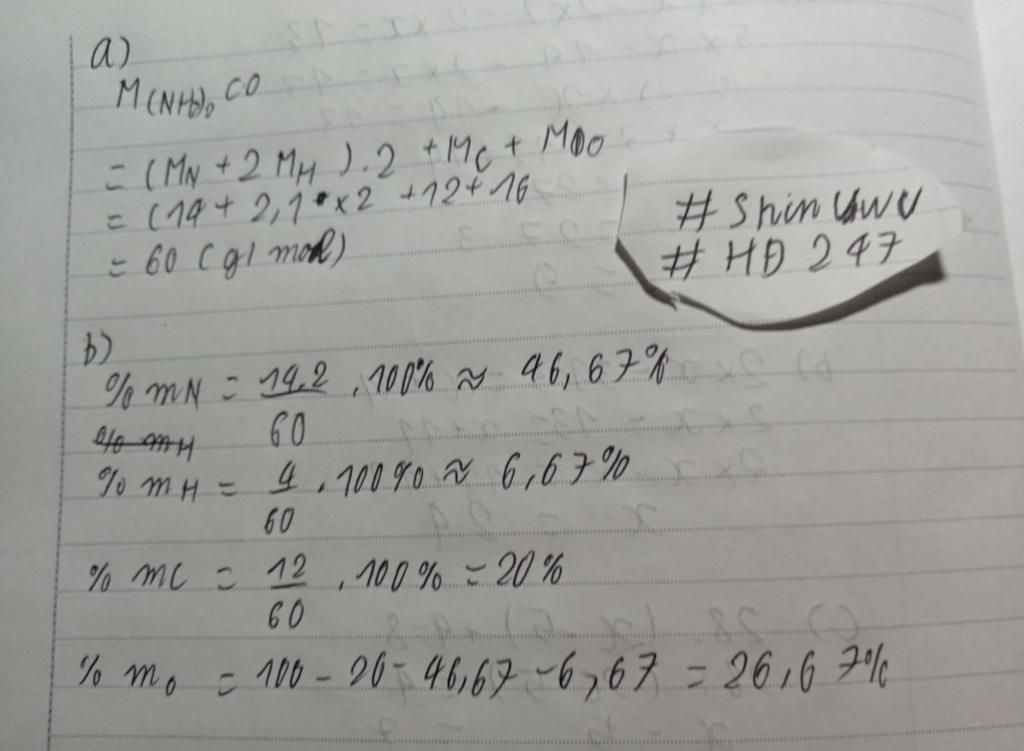 a)
M(NH2)2 CO
= (MN + 2 MH ). 2 + MC + MO
= (14 + 2,1 × 2 + 12 + 16
= 60 ( g/ mol)
# Shin UwU
# HĐ 247
b)
% mN = 14.2 / 60 . 100% ≈ 46,67%
% mH
% mH = 4 / 60 . 100% ≈ 6,67%
% mC = 12 / 60 . 100% = 20%
% mo = 100 - 20 - 46,67 - 6,67 = 26,67%